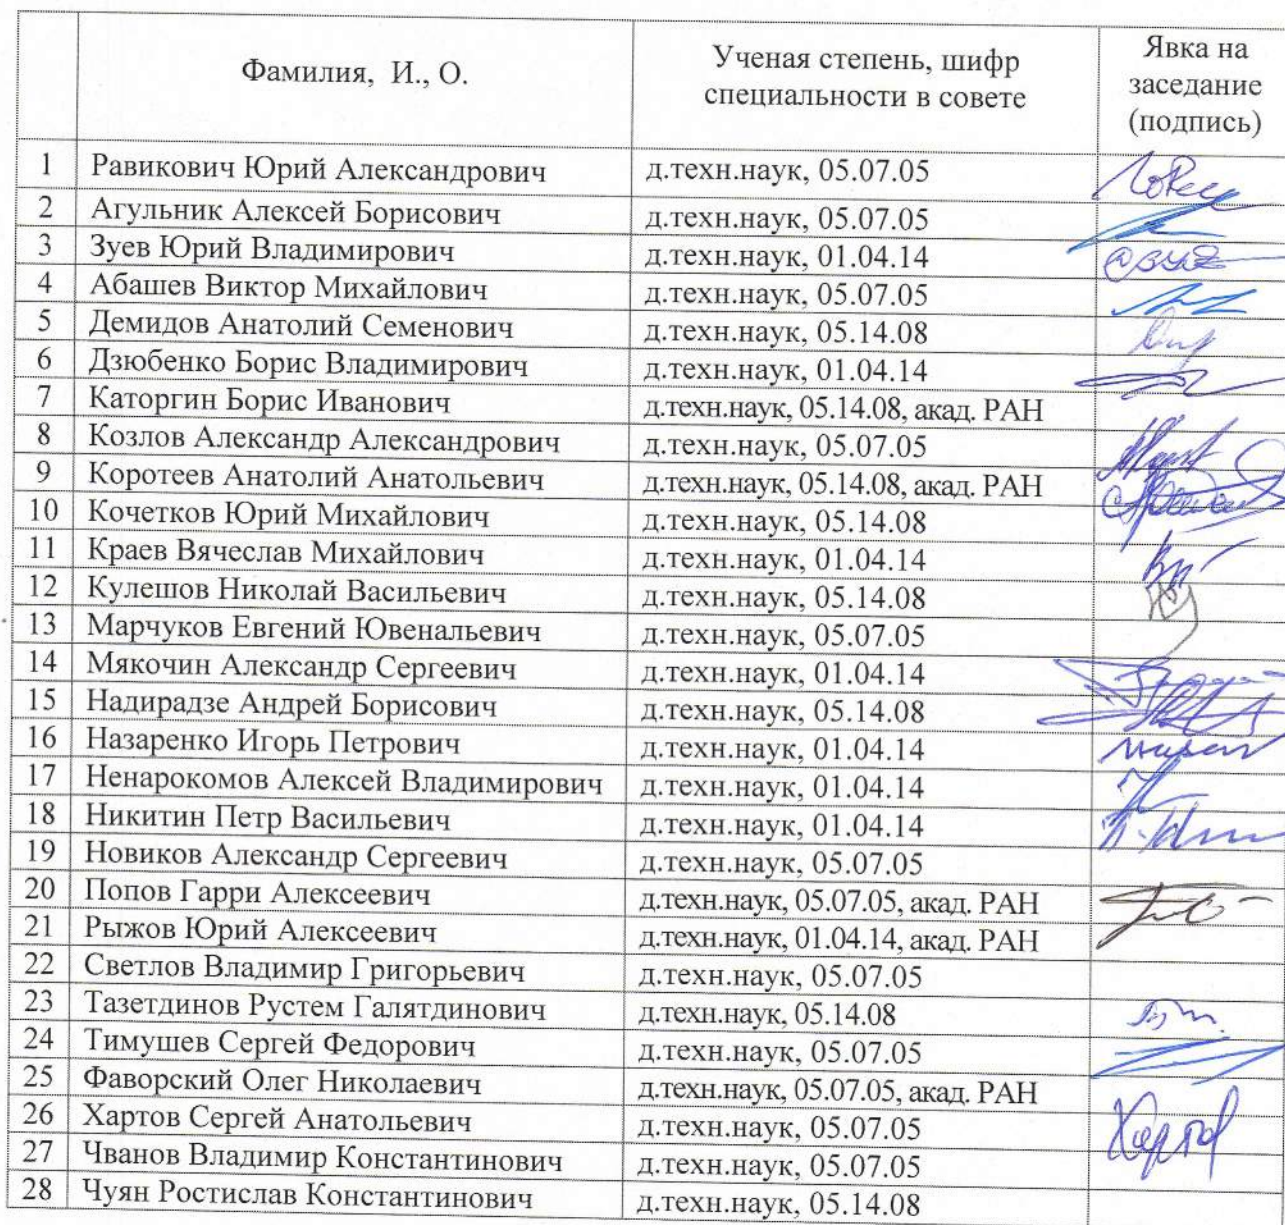 Фамилия, И., О.
Ученая степень, шифр
специальности в совете
Явка на
заседание
(подпись)
1 Равикович Юрий Александрович д.техн.наук, 05.07.05
2 Агульник Алексей Борисович д.техн.наук, 05.07.05
3 Зуев Юрий Владимирович д.техн.наук, 01.04.14
4 Абашев Виктор Михайлович д.техн.наук, 05.07.05
5 Демидов Анатолий Семенович д.техн.наук, 05.14.08
6 Дзюбенко Борис Владимирович д.техн.наук, 01.04.14
7 Каторгин Борис Иванович д.техн.наук, 05.14.08, акад. РАН
8 Козлов Александр Александрович д.техн.наук, 05.07.05
9 Коротеев Анатолий Анатольевич д.техн.наук, 05.14.08, акад. РАН
10 Кочетков Юрий Михайлович д.техн.наук, 05.14.08
11 Краев Вячеслав Михайлович д.техн.наук, 01.04.14
12 Кулешов Николай Васильевич д.техн.наук, 05.14.08
13 Марчуков Евгений Ювенальевич д.техн.наук, 05.07.05
14 Мякочин Александр Сергеевич д.техн.наук, 01.04.14
15 Надирадзе Андрей Борисович д.техн.наук, 05.14.08
16 Назаренко Игорь Петрович д.техн.наук, 01.04.14
17 Ненарокомов Алексей Владимирович д.техн.наук, 01.04.14
18 Никитин Петр Васильевич д.техн.наук, 01.04.14
19 Новиков Александр Сергеевич д.техн.наук, 05.07.05
20 Попов Гарри Алексеевич д.техн.наук, 05.07.05, акад. РАН
21 Рыжов Юрий Алексеевич д.техн.наук, 01.04.14, акад. РАН
22 Светлов Владимир Григорьевич д.техн.наук, 05.07.05
23 Тазетдинов Рустем Галятдинович д.техн.наук, 05.14.08
24 Тимушев Сергей Федорович д.техн.наук, 05.07.05
25 Фаворский Олег Николаевич д.техн.наук, 05.07.05, акад. РАН
26 Хартов Сергей Анатольевич д.техн.наук, 05.07.05 Хартов
27 Чванов Владимир Константинович д.техн.наук, 05.07.05
28 Чуян Ростислав Константинович д.техн.наук, 05.14.08